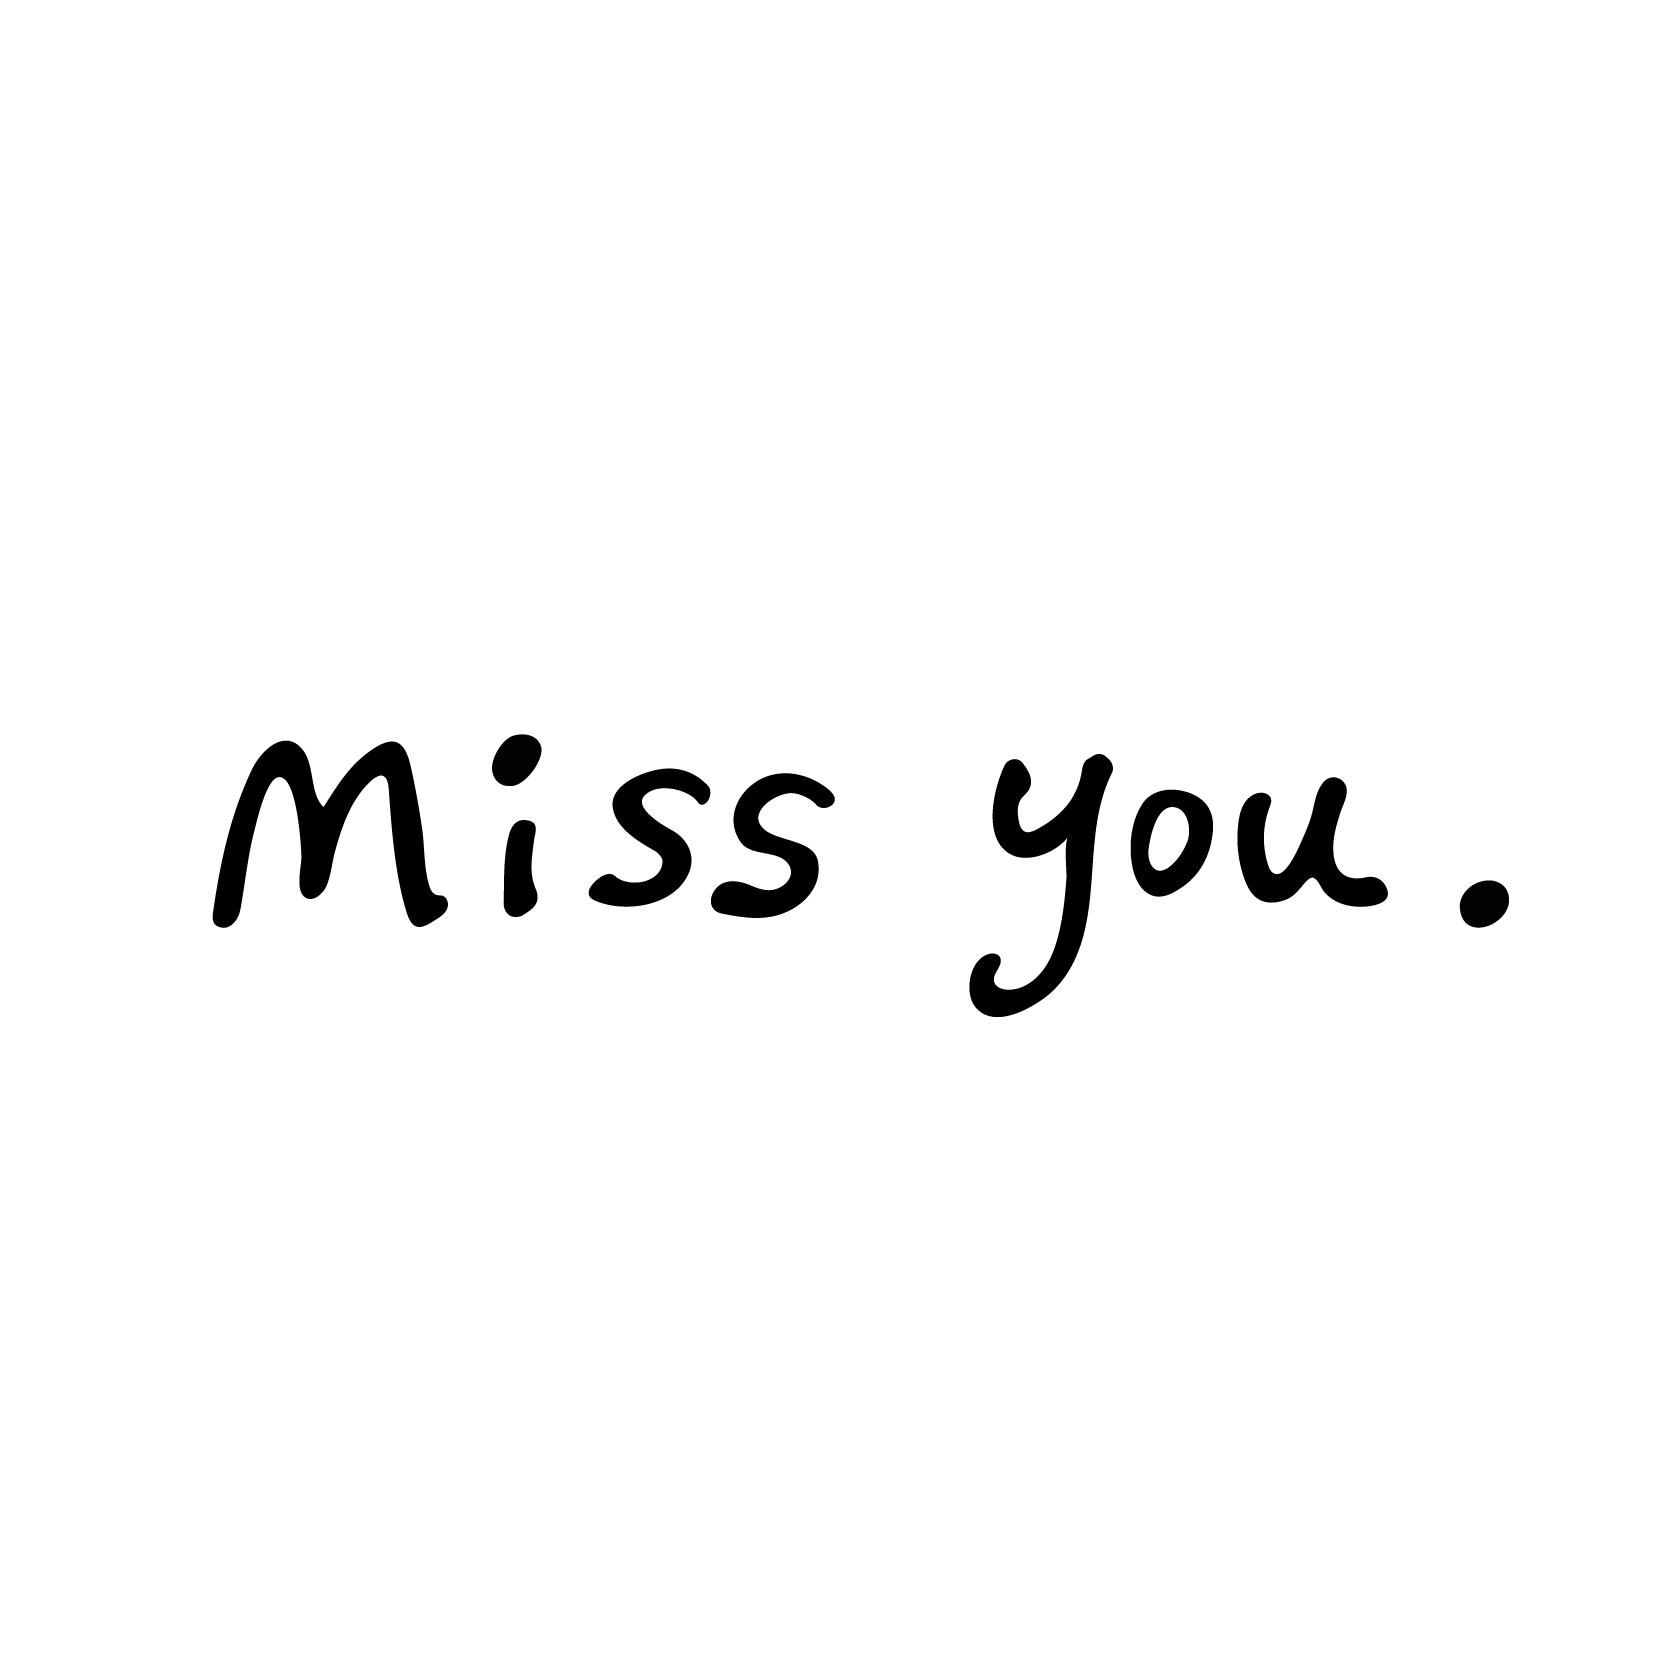 Miss you.